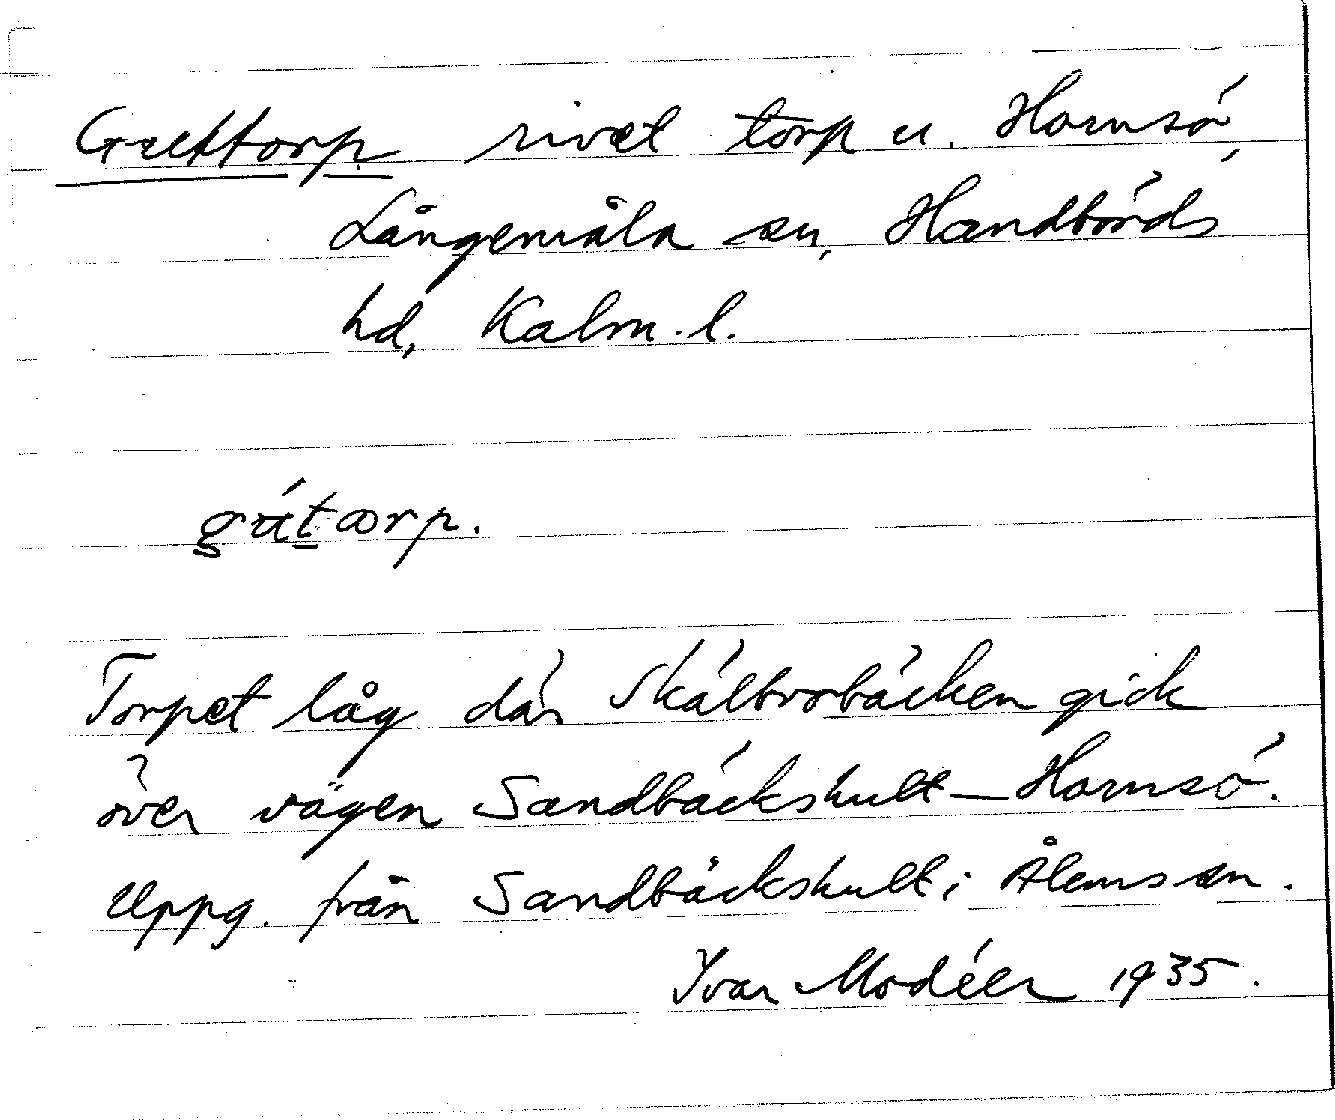 Guttorp. rivet torp u. Hornsö,
Långemåla sn, Handbörds
hd, Kalm. l.
gútorp.
Torpet låg där Skälbrobäcken gick
över vägen Sandbäckshult – Hornsö.
Uppg. från Sandbäckshult i Ålems sn.
Ivar Modéer 1935.